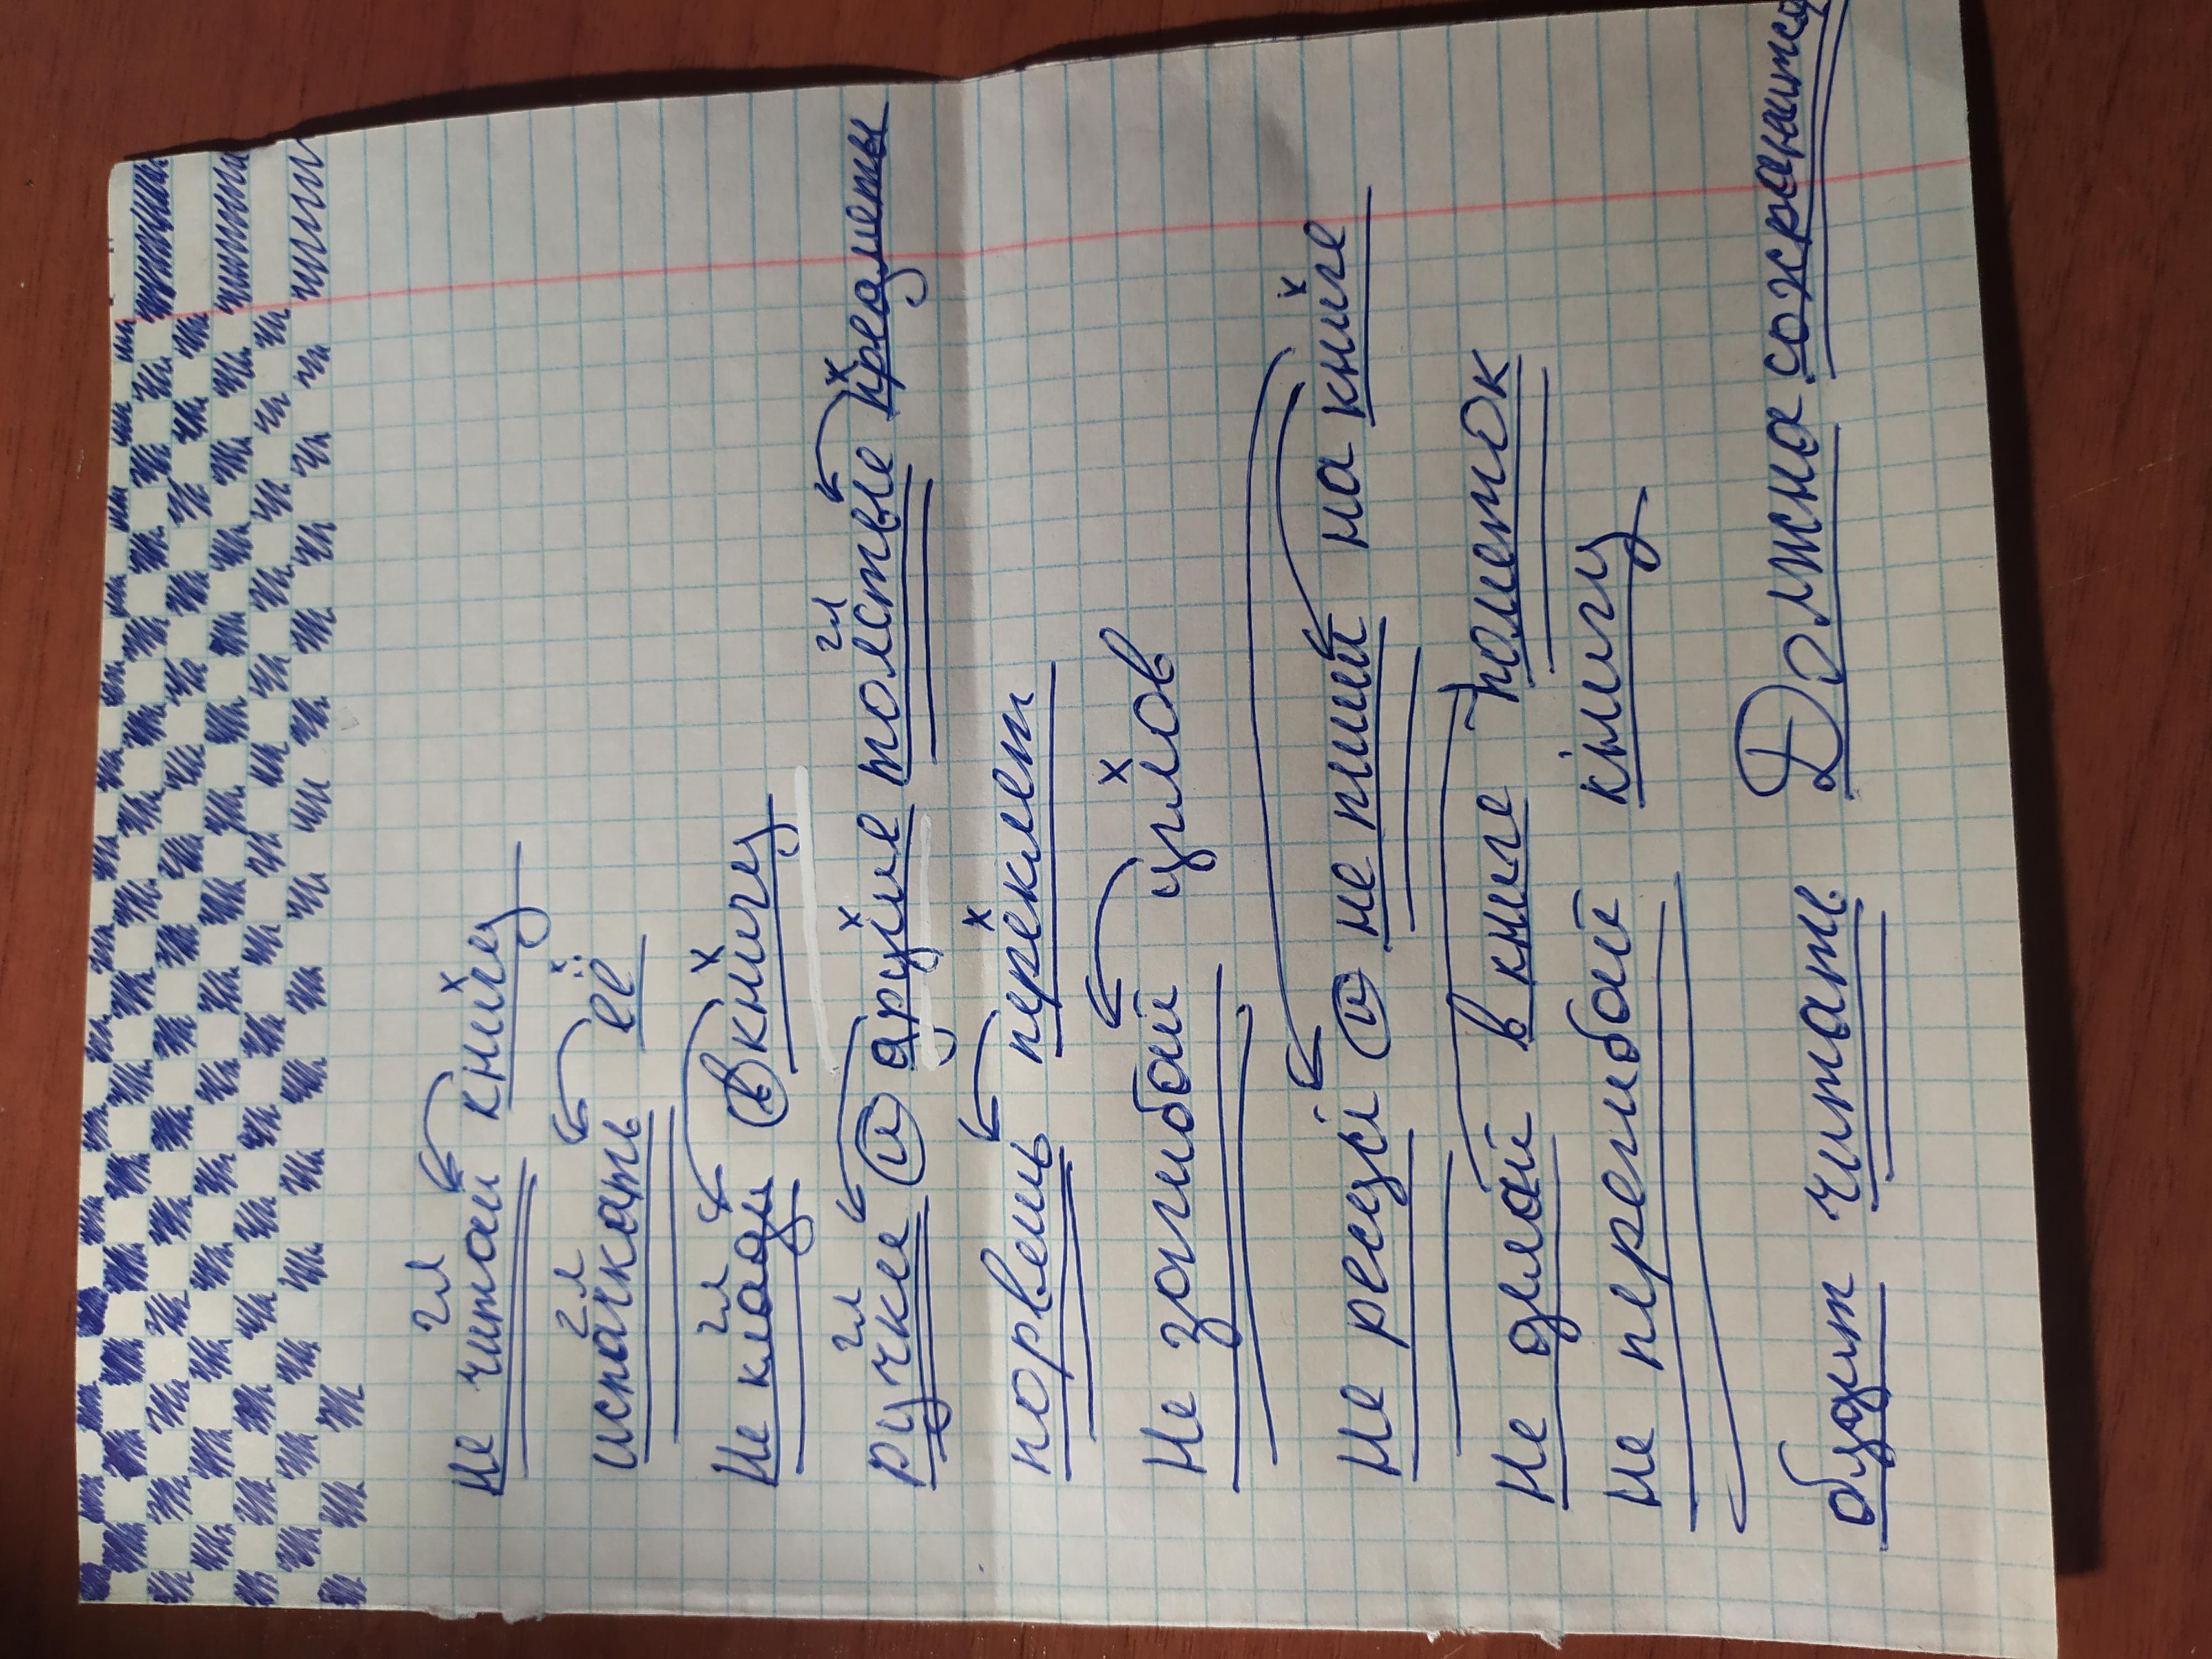 гл х
Не читай книгу
гл х
испачкать её
гл х
Не клади в книгу
гл х гл х
ручке и другие толствые предметы
х
порвешь переклет
х
Не загибай углов
х
Не ресуй и не пиши на книге
Не делай в книге пометок
Не перегибай книгу
будет читать Должна сохраниться